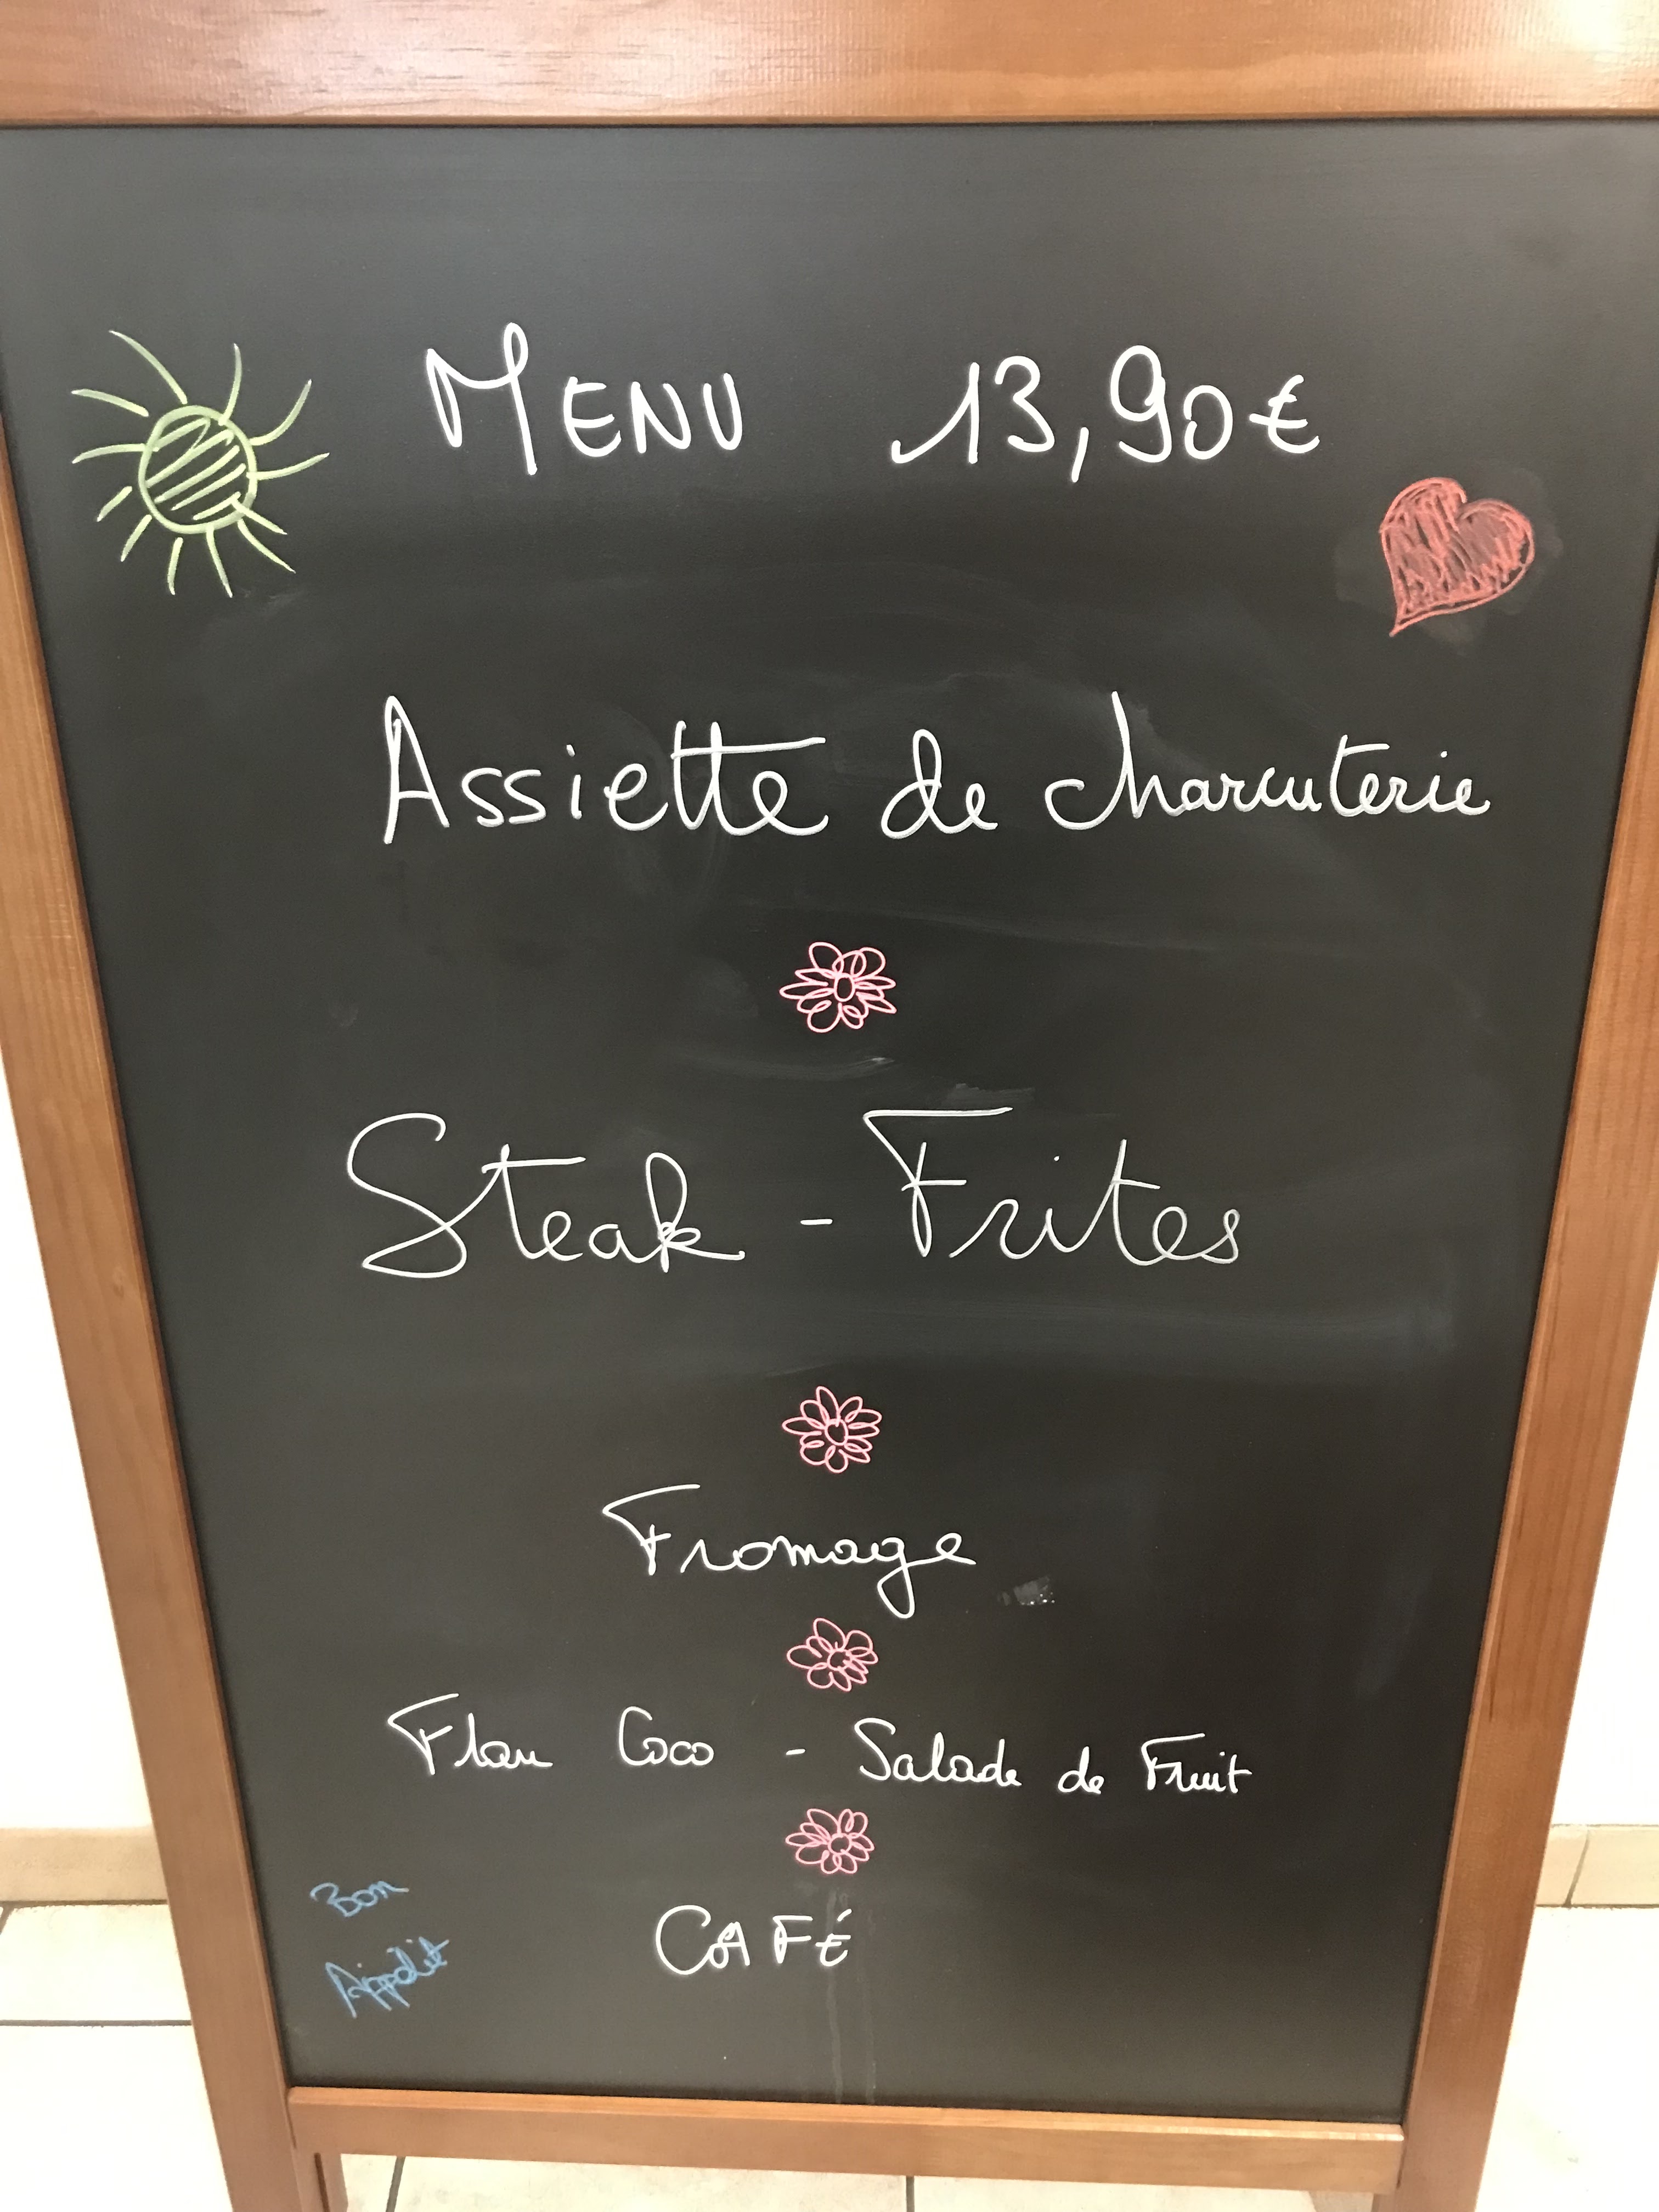 MENU 13,90€
Assiette de charcuterie
Steak - Frites
Fromage
Flan Coco - Salade de Fruit
CAFÉ
Bon
Appétit